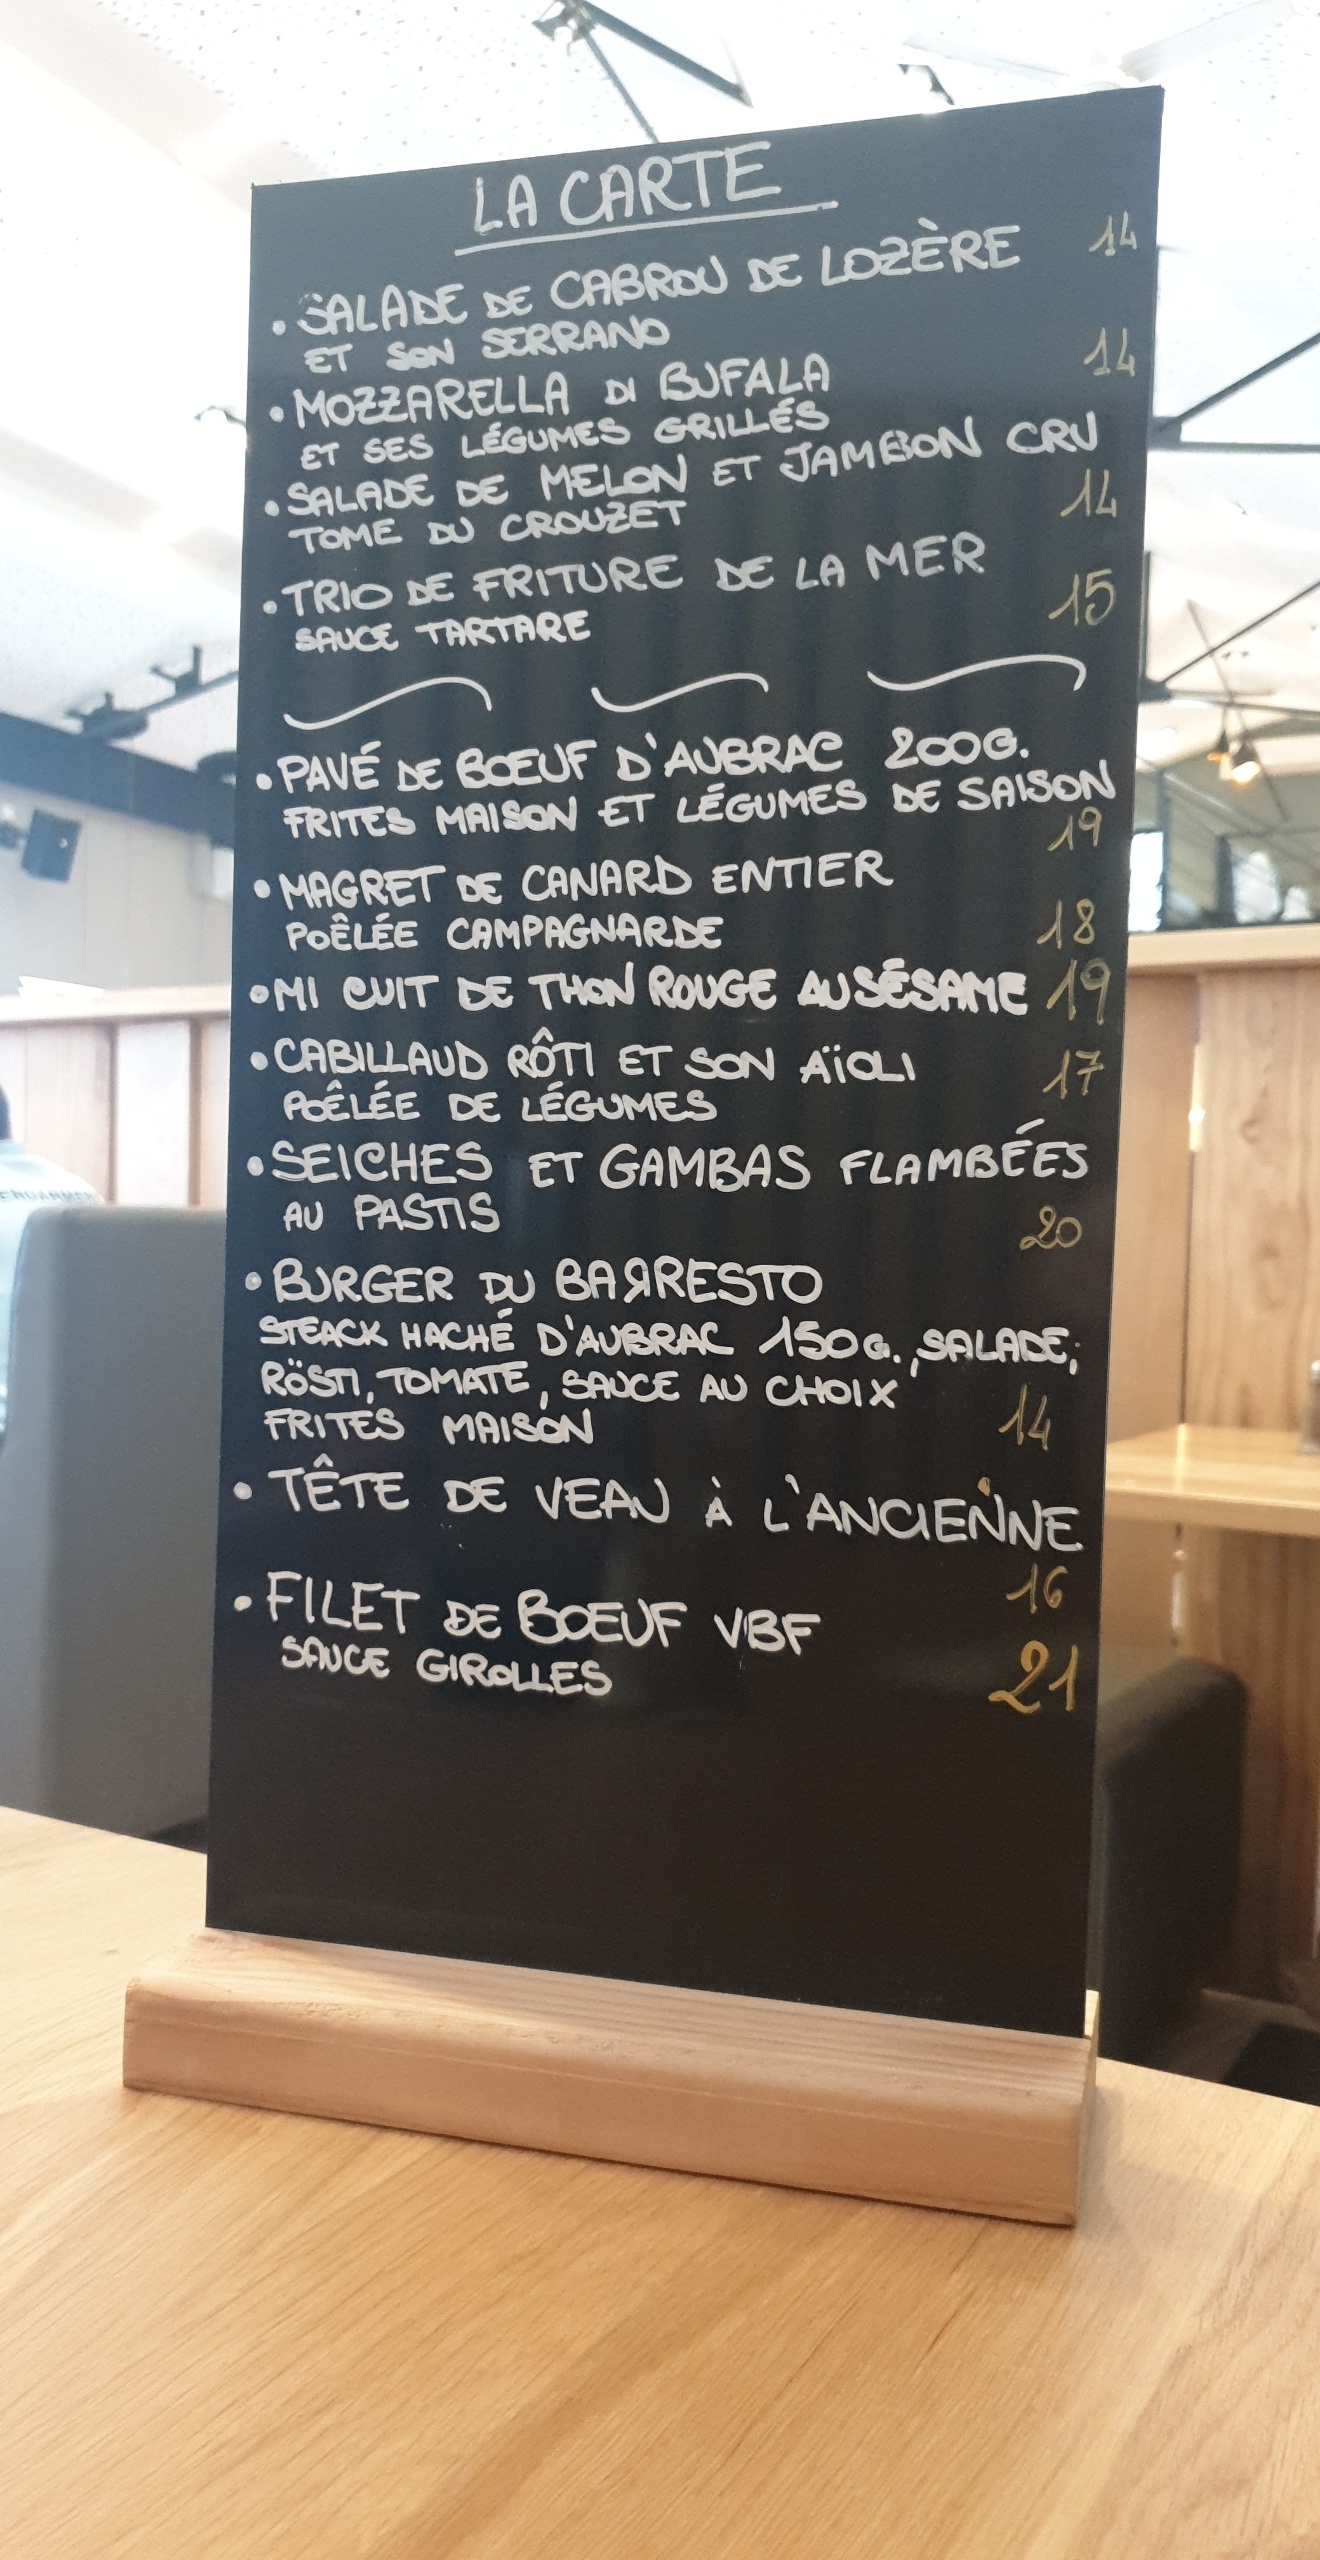 LA CARTE
• SALADE DE CABROU DE LOZÈRE 14
ET SON SERRANO
• MOZZARELLA DI BUFALA 14
ET SES LÉGUMES GRILLÉS
• SALADE DE MELON ET JAMBON CRU
TOME DU CROUZET 14
• TRIO DE FRITURE DE LA MER
SAUCE TARTARE 15
• PAVÉ DE BOEUF D'AUBRAC 200G.
FRITES MAISON ET LÉGUMES DE SAISON
19
• MAGRET DE CANARD ENTIER
POÊLÉE CAMPAGNARDE 18
• MI CUIT DE THON ROUGE AU SÉSAME 19
• CABILLAUD RÔTI ET SON AÏOLI 17
POÊLÉE DE LÉGUMES
• SEICHES ET GAMBAS FLAMBÉES
AU PASTIS 20
• BURGER DU BARRESTO
STEACK HACHÉ D'AUBRAC 150G., SALADE,
RÖSTI, TOMATE, SAUCE AU CHOIX
FRITES MAISON 14
• TÊTE DE VEAU À L'ANCIENNE
16
• FILET DE BOEUF VBF
SAUCE GIROLLES 21